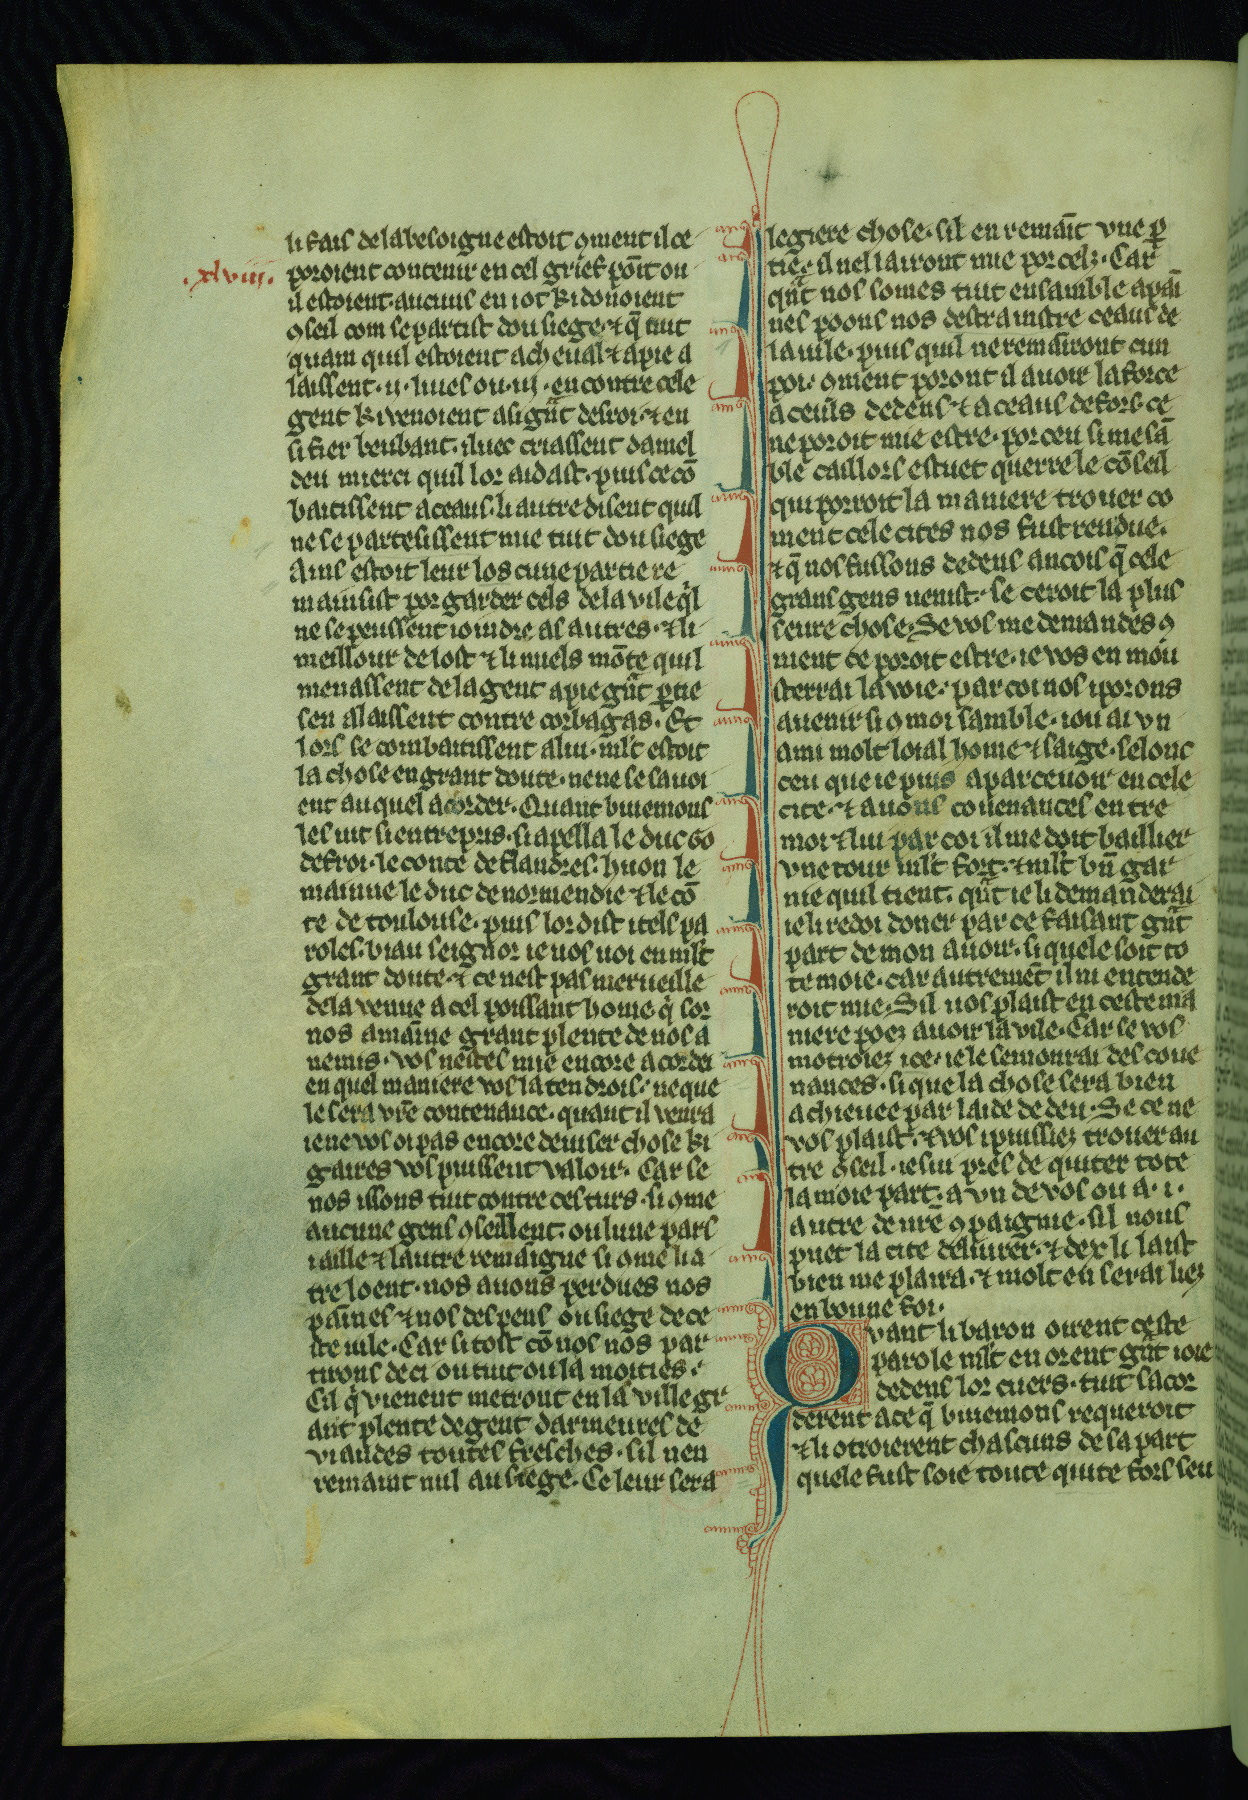 li fais de la besoigne estoit ꝯment il ce
.xlviii.
poroient contenir en cel grief pōit ou
il estoient. aucuns en i ot ki donoient
ꝯseil com se partist dou siege. ⁊ q̄ tuit
quam quil estoient a cheual ⁊ a pie a
laissent .ii. liues ou .iii. en contre cele
gent ki venoient a si gͣnt desroi. ⁊ en
si fier beubant. iluec criassent damel
deu merci quil lor aidast. puis ce cō
batissent a ceaus. li autre disent quil
ne se partesissent mie tuit dou siege
Ains estoit leur los cune partie re
mainsist por garder cels de la vile q̓l
ne se peussent ioindre as autres. ⁊ li
meillour de lost ⁊ li miels mōte quil
menassent de la gent a pie gͣnt ꝑtie
sen alaissent contre corbagas. Et
lors se combatissent a lui. ml̓t estoit
la chose en grant doute. ne ne se sauoi
ent au quel acorder. Quant buiemons
les vit si entrepris. si apella le duc go
defroi. le conte de flandres. huon le
mainne le duc de normendie ⁊ le cō
te de toulouse. puis lor dist itels pa
roles. biau seignor ie uos uoi en ml̓t
grant doute. ⁊ ce nest pas merueille
de la venue a cel poissant home q̓ sor
nos amaīne grant plente de nos a
nemis. vos nestes mie encore acorde
en quel maniere vos latendrois. ne que
le sera vr̄e contenance. quant il venra
ie ne vos oi pas encore deuiser chose ki
gaires vos puissent valoir. Car se
nos issons tuit contre ces turs. si ꝯme
aucune gens ꝯseillent. ou lune pars
i aille ⁊ lautre remaigne si ꝯme li a
tre loent. nos auons perdues nos
painnes ⁊ nos despens ou siege de ce
ste uile. Car si tost cō nos nos par
tirons de ci ou tuit ou la moities.
Cil q̓ vienent metront en la ville gr
ant plente de gent darmeures de
viandes toutes fresches. sil nen
remaint nul au siege. Ce leur sera
legiere chose. sil en remaīt vne ꝑ
tie. il nel lairont mie por celz. Car
qͣnt nos somes tuit ensamble a pai
nes poons nos destraīnstre ceaus de
la uile. puis quil ne remairont cun
poi. ꝯment poront il auoir la force
a ceuls dedens ⁊ a ceaus defors. ce
ne poroit mie estre. por ceu si me sā
ble caillors estuet querre le cōseil
qui porroit la maniere trouer co
ment cele cites nos fust rendue.
⁊ q̄ nos fussons dedens ancois q̄ cele
grans gens uenist. se ceroit la plus
seure chose. Se vos me demandes ꝯ
ment ce poroit estre. ie vos en mou
sterrai la voie. par coi nos i porons
auenir si ꝯ moi samble. iou ai vn
ami molt loial home ⁊ saige. selonc
ceu que ie puis aparceuoir en cele
cite. ⁊ auons couenances entre
moi ⁊ lui par coi il me doit baillier
vne tour ml̓t fort. ⁊ ml̓t bn̄ gar
nie quil tient. qͣnt ie li demanderai
ie li redoi doner par ce faisant gͣnt
part de mon auoir. si quele soit to
te moie. car autremēt il ni entende
roit mie. Sil uos plaist en ceste ma
niere poez auoir la vile. Car se vos
motroiez ice. ie le semonrai des coue
nances. si que la chose sera bien
achieuee par laide de deu. Se ce ne
vos plaist. ⁊ vos i puissiez trouer au
tre ꝯseil. ie sui pres de quiter tote
la moie part. a vn de vos ou a .i.
autre de nr̄e ꝯpaignie. sil nous
puet la cite deliurer. ⁊ dex li laist
bien me plaira. ⁊ molt en serai liez
en bonne foi.
Quant li baron oirent ceste
parole ml̓t en orent gͣnt ioie
dedens lor cuers. tuit sacor
derent a ce q̄ buiemons requeroit
⁊ li otroierent chascuns de sa part
quele fust soie toute quite fors seu